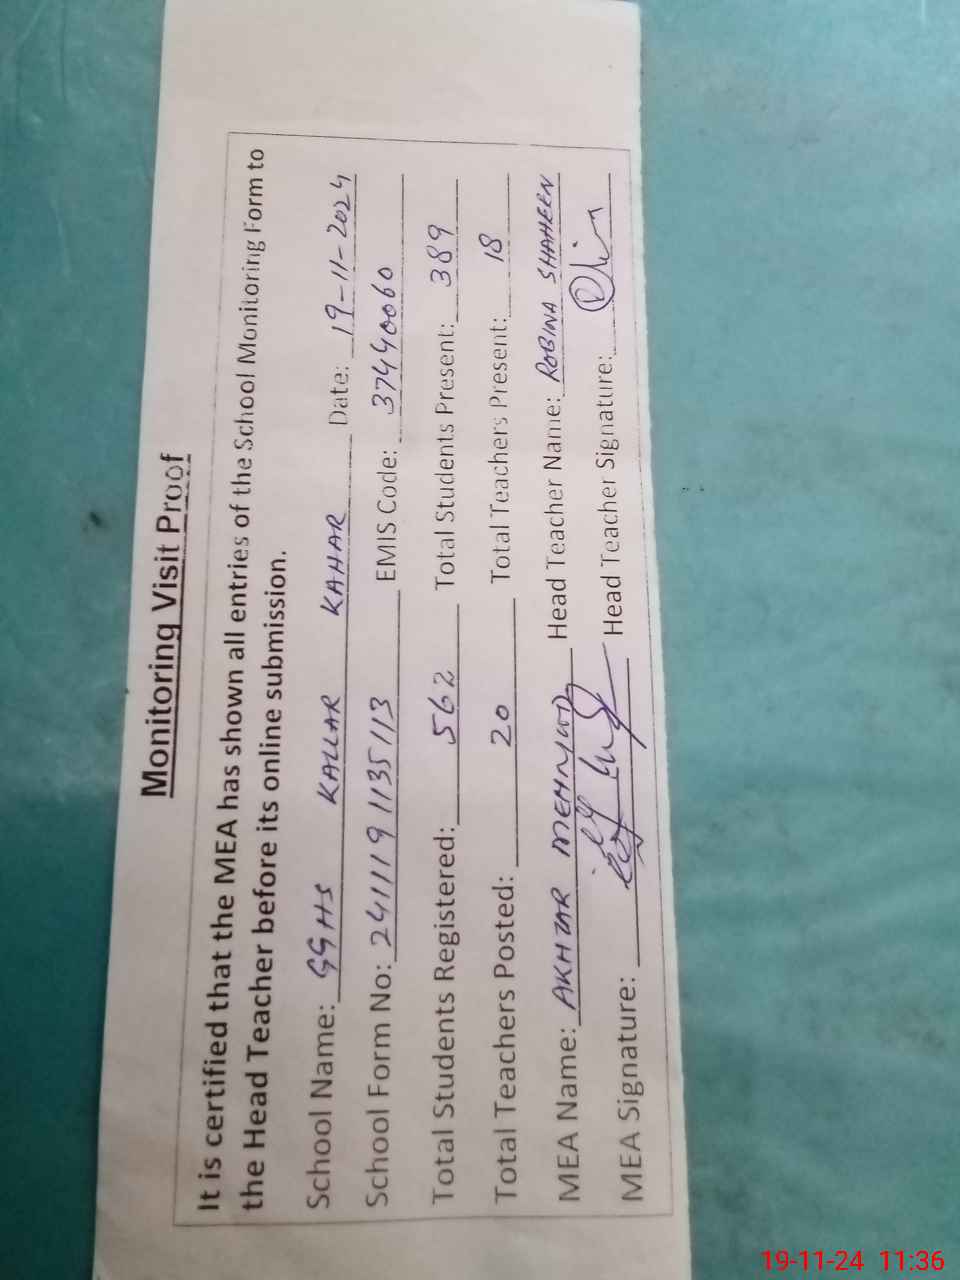 Monitoring Visit Proof
It is certified that the MEA has shown all entries of the School Monitoring Form to
the Head Teacher before its online submission.
School Name: GGHS KALLAR KAHAR Date: 19-11-2024
School Form No: 2411119 1135113 EMIS Code: 37440060
Total Students Registered: 562 Total Students Present: 389
Total Teachers Posted: 20 Total Teachers Present: 18
MEA Name: AKHTAR MEHMOOD Head Teacher Name: ROBINA SHAHEEN
MEA Signature: Head Teacher Signature:
19-11-24 11:36